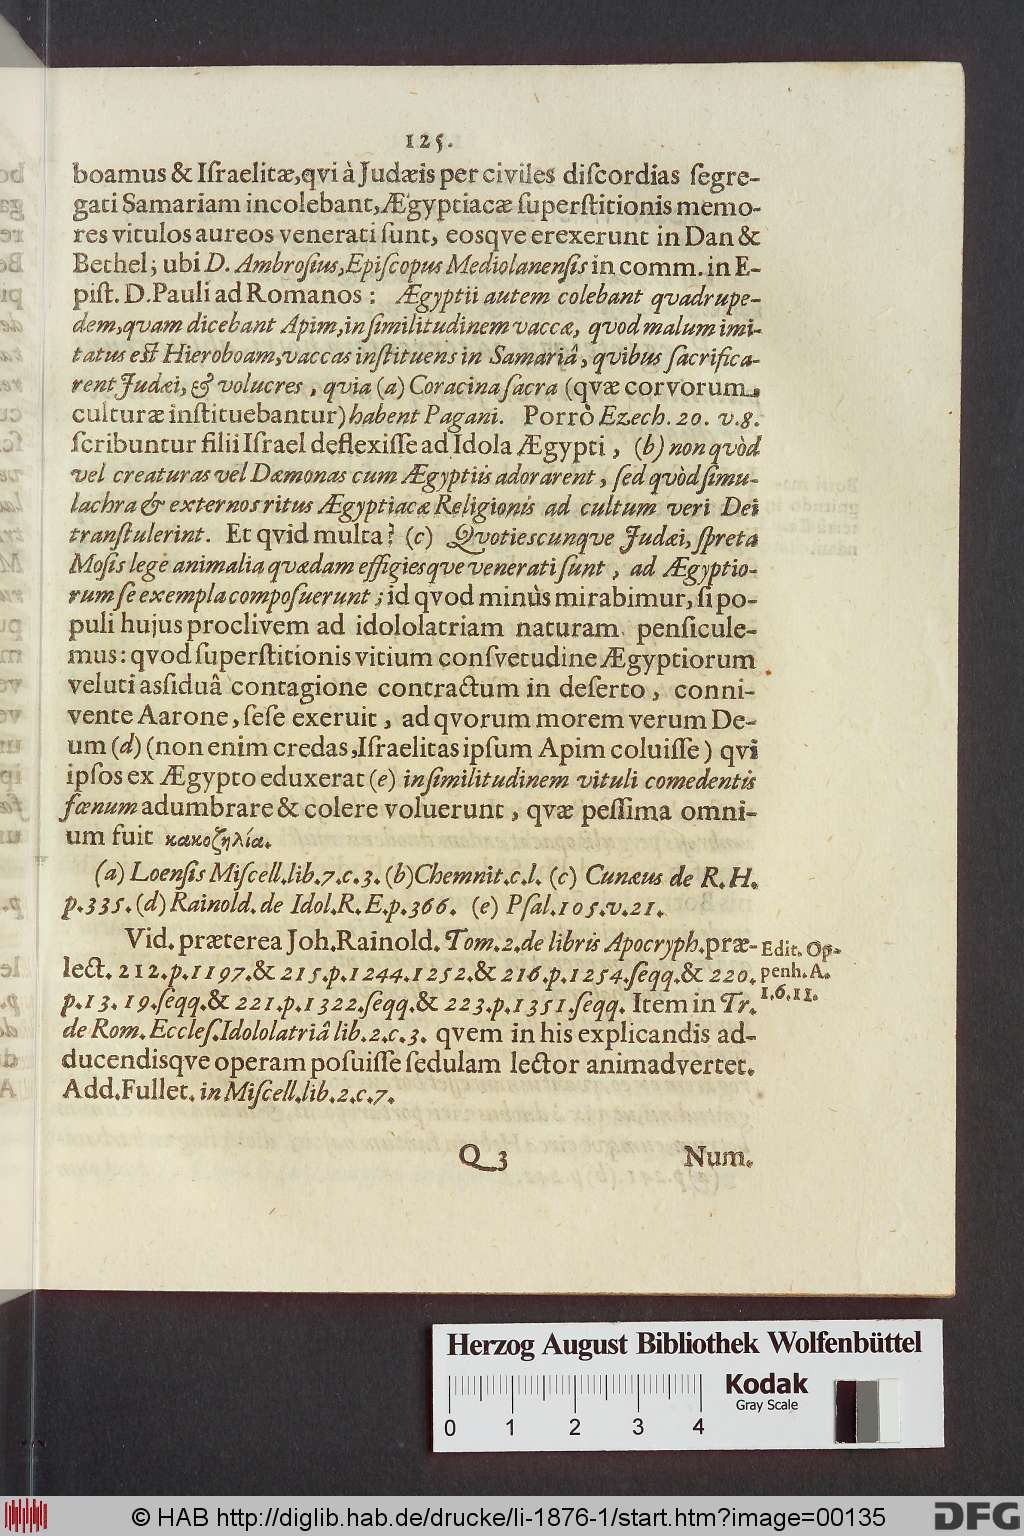 125.
boamus & Iſraelitæ,qvi à Judæis per civiles diſcordias ſegre-
gati Samariam incolebant,Ægyptiacæ ſuperſtitionis memo-
res vitulos aureos venerati ſunt, eosqve erexerunt in Dan &
Bethel; ubi D. Ambroſius,Epiſcopus Mediolanenſis in comm. in E-
piſt. D.Pauli ad Romanos : Ægyptii autem colebant qvadrupe-
dem,qvam dicebant Apim,in ſimilitudinem vaccæ, qvod malum imi-
tatus eſt Hieroboam,vaccas inſtituens in Samariâ, qvibus ſacrifica-
rent Judæi, & volucres, qvia (a) Coracina ſacra (qvæ corvorum
culturæ inſtituebantur) habent Pagani. Porrò Ezech. 20. v.8.
ſcribuntur filii Iſrael deflexiſſe ad Idola Ægypti, (b) non qvòd
vel creaturas vel Dæmonas cum Ægyptiis adorarent, ſed qvòd ſimu-
lachra & externos ritus Ægyptiacæ Religionis ad cultum veri Dei
tranſtulerint. Et qvid multa? (c) Qvotiescunqve Judæi, ſpreta
Moſis lege animalia qvædam effigiesqve venerati ſunt, ad Ægyptio-
rum ſe exempla compoſuerunt; id qvod minùs mirabimur, ſi po-
puli hujus proclivem ad idololatriam naturam penſicule-
mus: qvod ſuperſtitionis vitium conſvetudine Ægyptiorum
veluti assiduâ contagione contractum in deſerto, conni-
vente Aarone, ſeſe exeruit, ad qvorum morem verum De-
um (d) (non enim credas,Iſraelitas ipſum Apim coluiſſe) qvi
ipſos ex Ægypto eduxerat (e) in ſimilitudinem vituli comedentis
fœnum adumbrare & colere voluerunt, qvæ peſſima omni-
um fuit κακοζηλία.
(a) Loenſis Miſcell.lib.7.c.3. (b)Chemnit.c.l. (c) Cunæus de R.H.
p.335. (d) Rainold. de Idol.R.E.p.366. (e) Pſal.105.v.21.
Vid. præterea Joh.Rainold. Tom.2.de libris Apocryph.præ-
lect. 212.p.1197.& 215.p.1244.1252.& 216.p.1254.ſeqq.& 220.
p.13.19.ſeqq.& 221.p.1322.ſeqq.& 223.p.1351.ſeqq. Item in Tr.
de Rom. Eccleſ.Idololatriâ lib.2.c.3. qvem in his explicandis ad-
ducendisqve operam poſuiſſe ſedulam lector animadvertet.
Add.Fullet. in Miſcell.lib.2.c.7.
Edit. Op-
penh. A.
1.6.11.
Q 3
Num.
Herzog August Bibliothek Wolfenbüttel
Kodak
Gray Scale
0 1 2 3 4
© HAB http://diglib.hab.de/drucke/li-1876-1/start.htm?image=00135
DFG